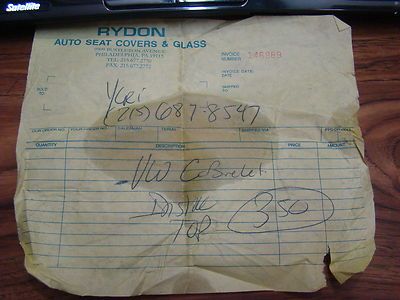 Satellite
RYDON
AUTO SEAT COVERS & GLASS
PHILADELPHIA, PA 19115
TEL: 215.677.2770
FAX: 215.677.2772
INVOICE NUMBER 146989
INVOICE DATE:
SOLD TO
SHIP DATE
SHIPPED TO
(215) 687-8547
OUR ORDER NO. YOUR ORDER NO. SALESMAN TERMS SHIPPED VIA
QUANTITY DESCRIPTION PRICE AMOUNT
VW Cabriolet
INSTALL
TOP
350